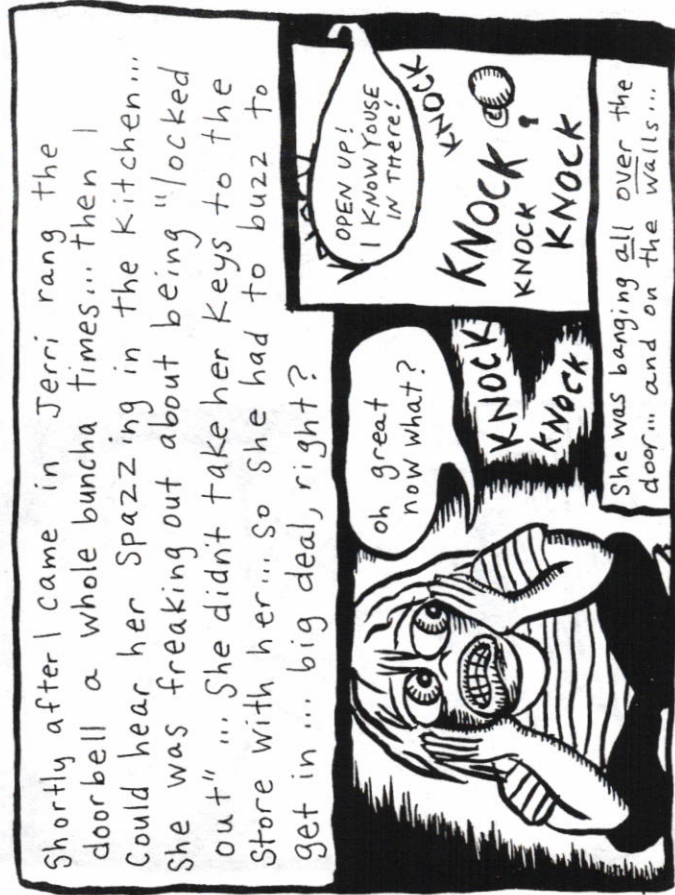 Shortly after I came in Jerri rang the
doorbell a whole buncha times... then I
Could hear her Spazzing in the Kitchen...
She was freaking out about being "locked
out"... She didn't take her Keys to the
Store with her... So She had to buzz to
get in... big deal, right?
oh great
now what?
KNOCK
KNOCK
OPEN UP!
I KNOW YOUSE
IN THERE!
KNOCK
KNOCK
KNOCK
KNOCK
She was banging all over the
door... and on the walls...